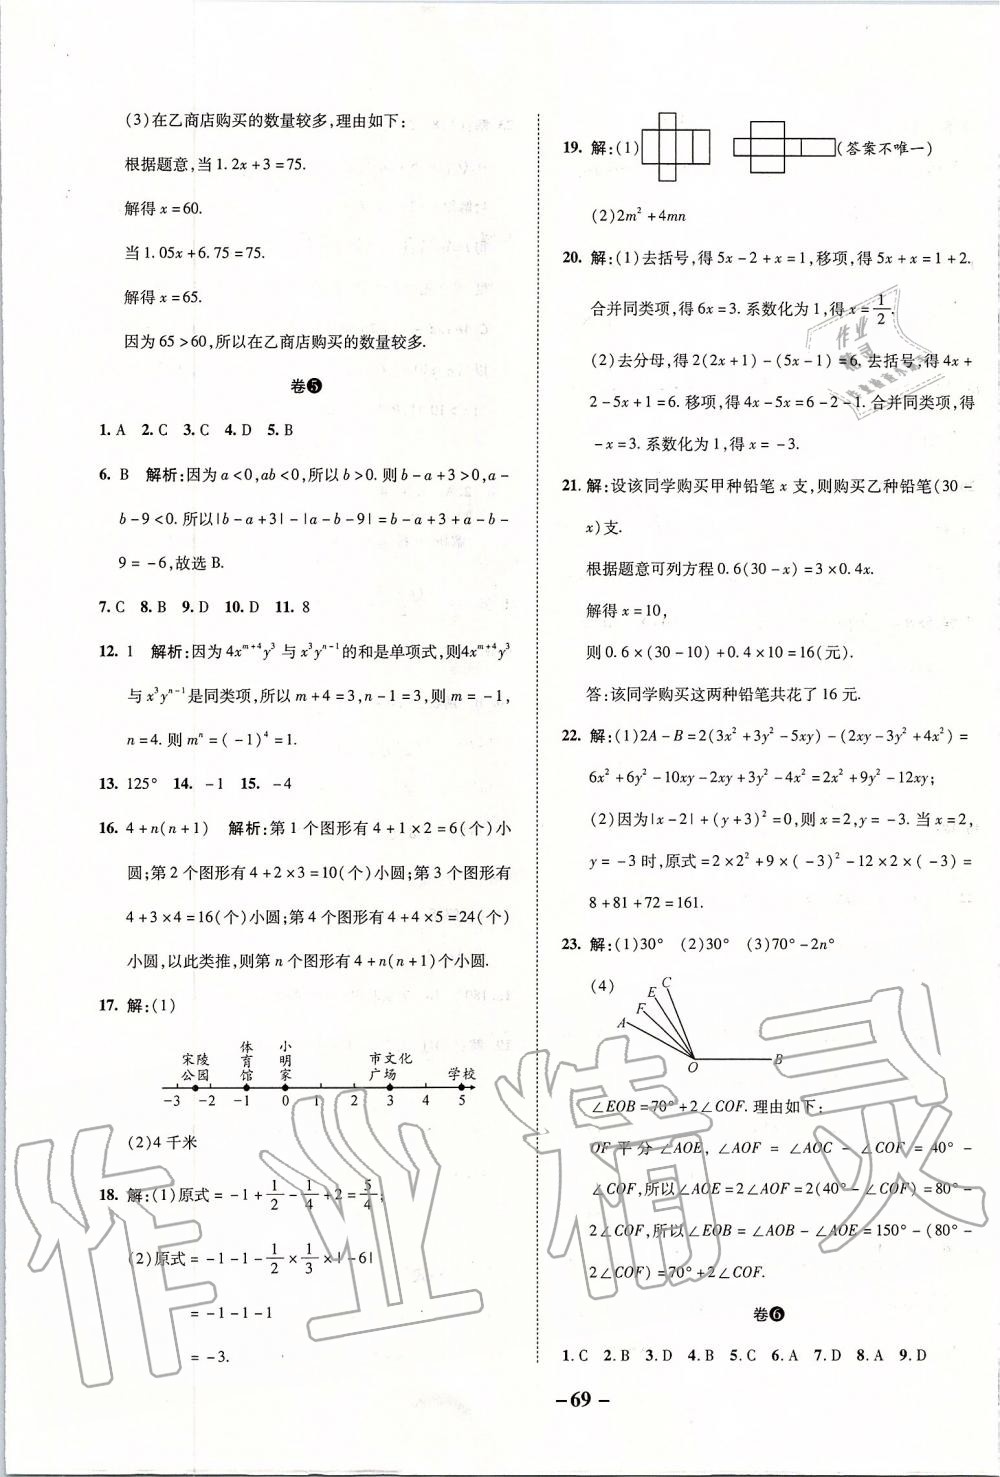 (3)在乙商店购买的数量较多,理由如下:
根据题意,当1.2x+3=75.
解得x=60.
当1.05x+6.75=75.
解得x=65.
因为65>60,所以在乙商店购买的数量较多.
卷❺
1. A 2. C 3. C 4. D 5. B
6. B 解析:因为a<0,ab<0,所以b>0.则b-a+3>0,a-
b-9<0.所以|b-a+3|-|a-b-9|=b-a+3+a-b-
9=-6,故选B.
7. C 8. B 9. D 10. D 11. 8
12. 1 解析:因为4x^{m+4}y^3与x^3y^{n-1}的和是单项式,则4x^{m+4}y^3
与x^3y^{n-1}是同类项,所以m+4=3,n-1=3,则m=-1,
n=4.则m^n=(-1)^4=1.
13. 125° 14. -1 15. -4
16. 4+n(n+1) 解析:第1个图形有4+1×2=6(个)小
圆;第2个图形有4+2×3=10(个)小圆;第3个图形有
4+3×4=16(个)小圆;第4个图形有4+4×5=24(个)
小圆,以此类推,则第n个图形有4+n(n+1)个小圆.
17. 解:(1)
宋陵公园 体育馆 小明家 市文化广场 学校
-3 -2 -1 0 1 2 3 4 5
(2)4千米
18. 解:(1)原式=-1+1/2-1/4+2=5/4;
(2)原式=-1-1-1/2×1/3×|-6|
=-1-1-1
=-3.
19. 解:(1) (答案不唯一)
(2)2m²+4mn
20. 解:(1)去括号,得5x-2+x=1,移项,得5x+x=1+2.
合并同类项,得6x=3.系数化为1,得x=1/2.
(2)去分母,得2(2x+1)-(5x-1)=6.去括号,得4x+
2-5x+1=6.移项,得4x-5x=6-2-1.合并同类项,得
-x=3.系数化为1,得x=-3.
21. 解:设该同学购买甲种铅笔x支,则购买乙种铅笔(30-
x)支.
根据题意可列方程0.6(30-x)=3×0.4x.
解得x=10,
则0.6×(30-10)+0.4×10=16(元).
答:该同学购买这两种铅笔共花了16元.
22. 解:(1)2A-B=2(3x²+3y²-5xy)-(2xy-3y²+4x²)=
6x²+6y²-10xy-2xy+3y²-4x²=2x²+9y²-12xy;
(2)因为|x-2|+(y+3)²=0,所以x=2,y=-3.当x=2,
y=-3时,原式=2×2²+9×(-3)²-12×2×(-3)=
8+81+72=161.
23. 解:(1)30° (2)30° (3)70°-2n°
(4)
A F E C O B
∠EOB=70°+2∠COF.理由如下:
OF平分∠AOE,∠AOF=∠AOC-∠COF=40°-
∠COF,所以∠AOE=2∠AOF=2(40°-∠COF)=80°-
2∠COF,所以∠EOB=∠AOB-∠AOE=150°-(80°-
2∠COF)=70°+2∠COF.
卷❻
1. C 2. B 3. D 4. B 5. C 6. A 7. D 8. A 9. D
-69-
作业精灵
作业
精灵